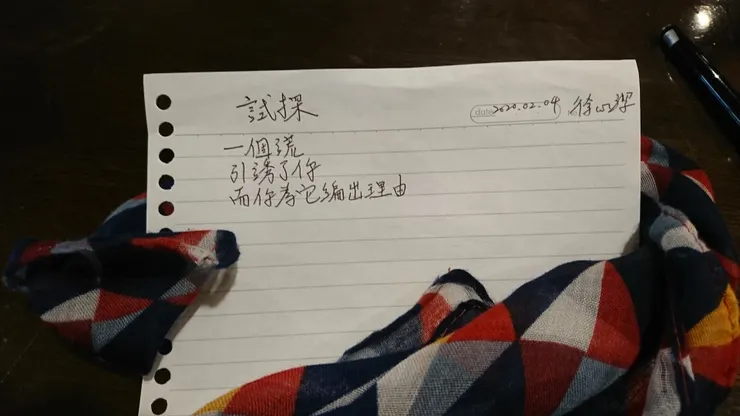 試探
date 2020.02.04 徐
一個謊
引誘了你
而你為它編出理由